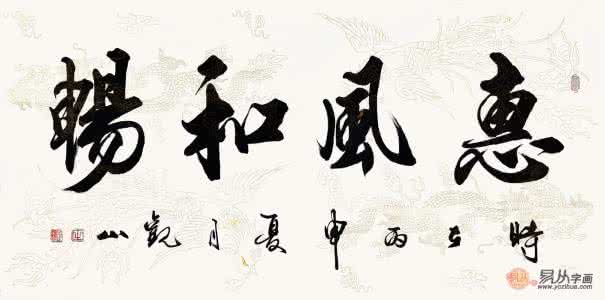 惠風和暢
時在丙申夏月觀山
易从字画
www.yozihua.com